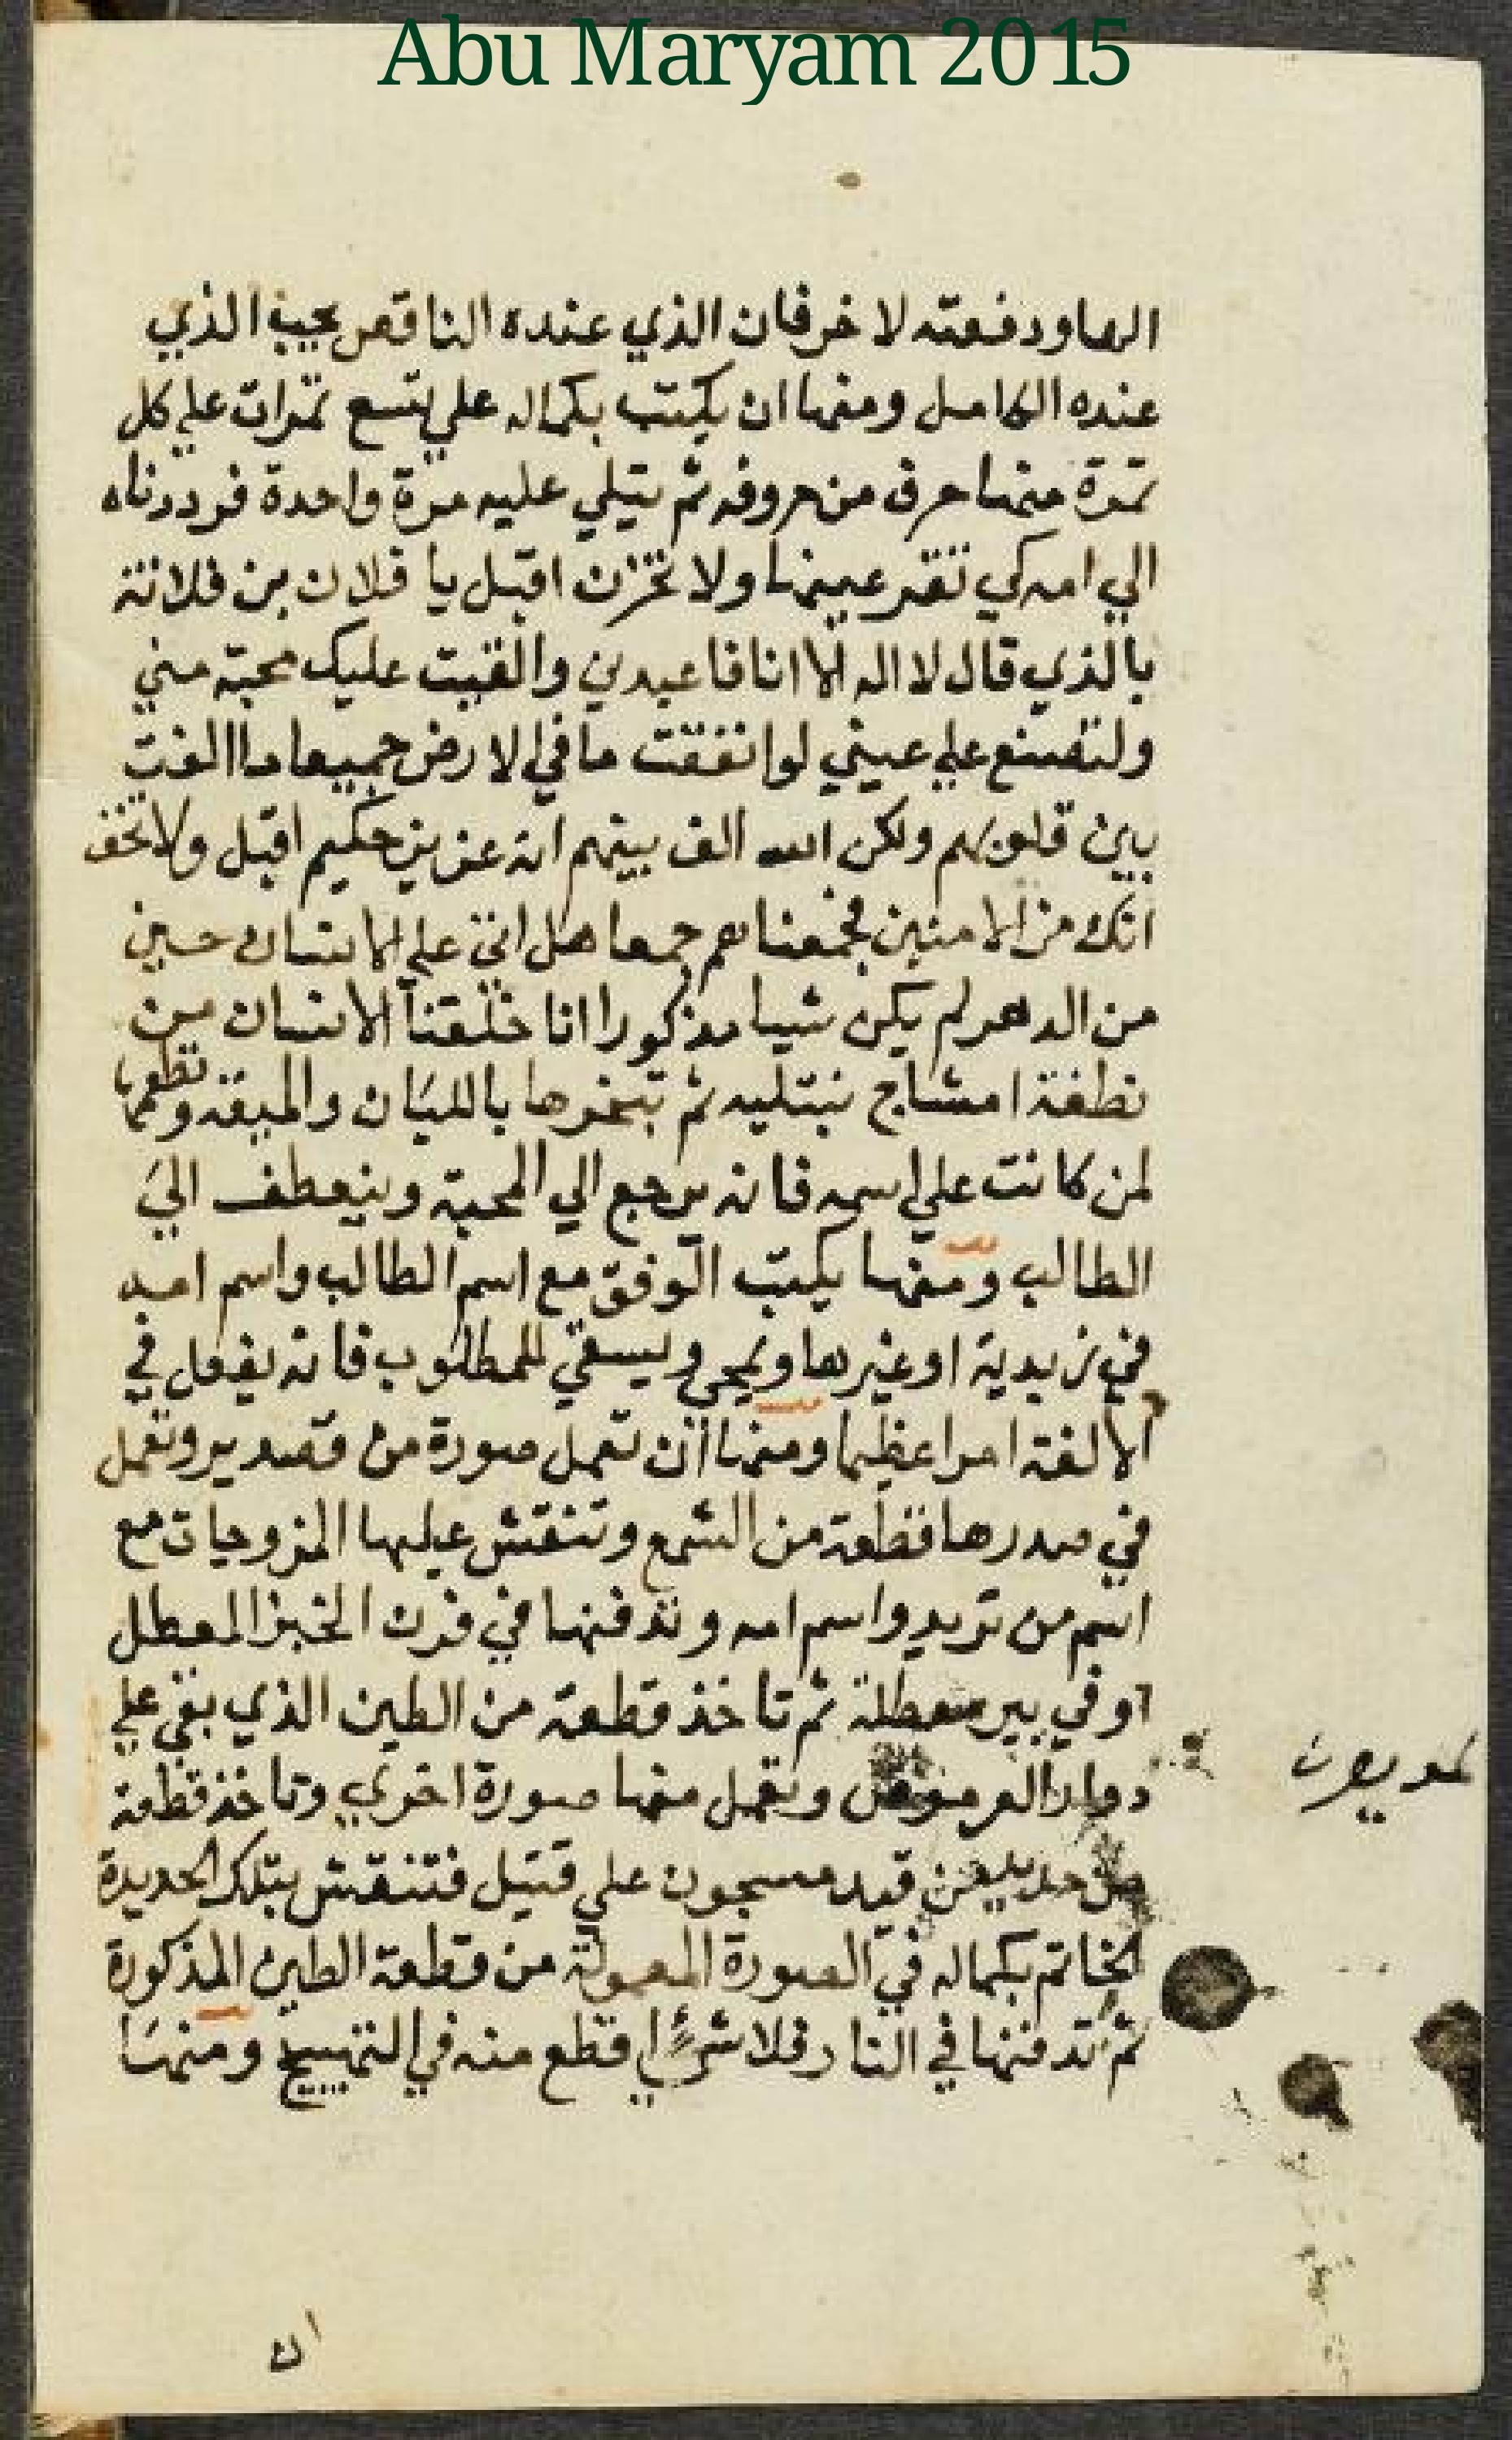 Abu Maryam 2015
الها ودفعته لاخر فان الذي عنده الناقص يجيب الذي
عنده الكامل ومنها ان يكتب بكماله علي تسع تمرات علي كل
تمرة منها حرف من حروفه ثم يتلي عليه مرة واحدة فرددناه
الي امه كي تقر عينها ولا تحزن اقبل يا فلان بن فلانة
بالذي قال لا اله الا انا فاعبدني والقيت عليك محبة مني
ولتصنع علي عيني لو انفقت ما في الارض جميعا ما الفت
بين قلوبهم ولكن الله الف بينهم انه عزيز حكيم اقبل ولا تخف
انك من الامنين فجمعناهم جمعا هل اتي علي الانسان حين
من الدهر لم يكن شيا مذكورا انا خلقنا الانسان من
نطفة امشاج نبتليه ثم تبخرها باللبان والميعة وتطعمها
لمن كانت علي اسمه فانه يرجع الي المحبة وينعطف الي
الطالب ومنها يكتب الوفق مع اسم الطالب واسم امه
في زبدية او غيرها ويمحي ويسقي للمطلوب فانه يفعل في
الالفة امرا عظيما ومنها ان تعمل صورة من قصدير وتعمل
في صدرها قطعة من الشمع وتنقش عليها المزوجات مع
اسم من تريد واسم امه وتدفنها في فرن الخبز المعطل
او في بير معطلة ثم تاخذ قطعة من الطين الذي بقي علي
وتعمل منها صورة اخري وتاخذ قطعة
من حديد من قيد مسجون علي قتيل فتنقش بتلك الحديدة
الخاتم بكماله في الصورة المعمولة من قطعة الطين المذكورة
ثم تدفنها في النار فلا شئ اقطع منه في التهييج ومنها
ان